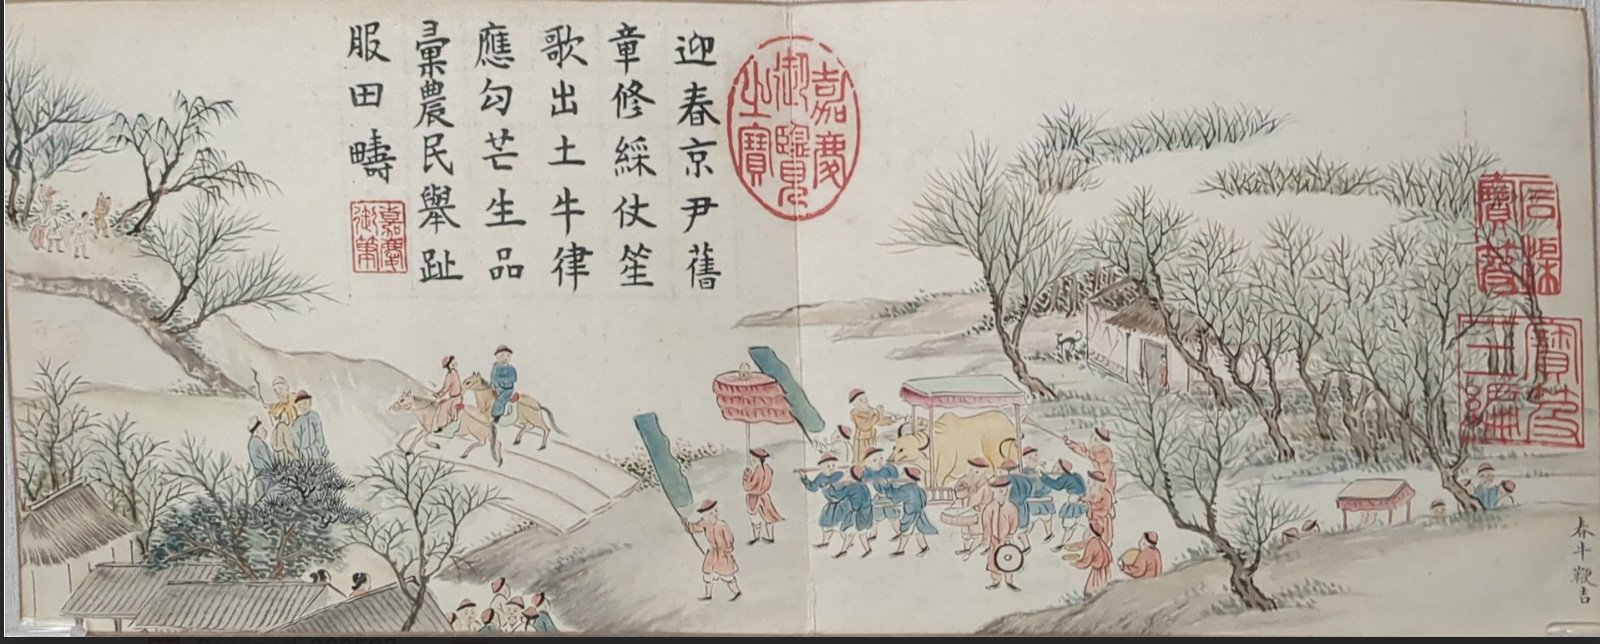 石渠寶笈
寶笈三編
春牛鞭吉
嘉慶御覽之寶
迎春京尹舊
章修綵仗笙
歌出土牛律
應勾芒生品
彙農民舉趾
服田疇
嘉慶御筆